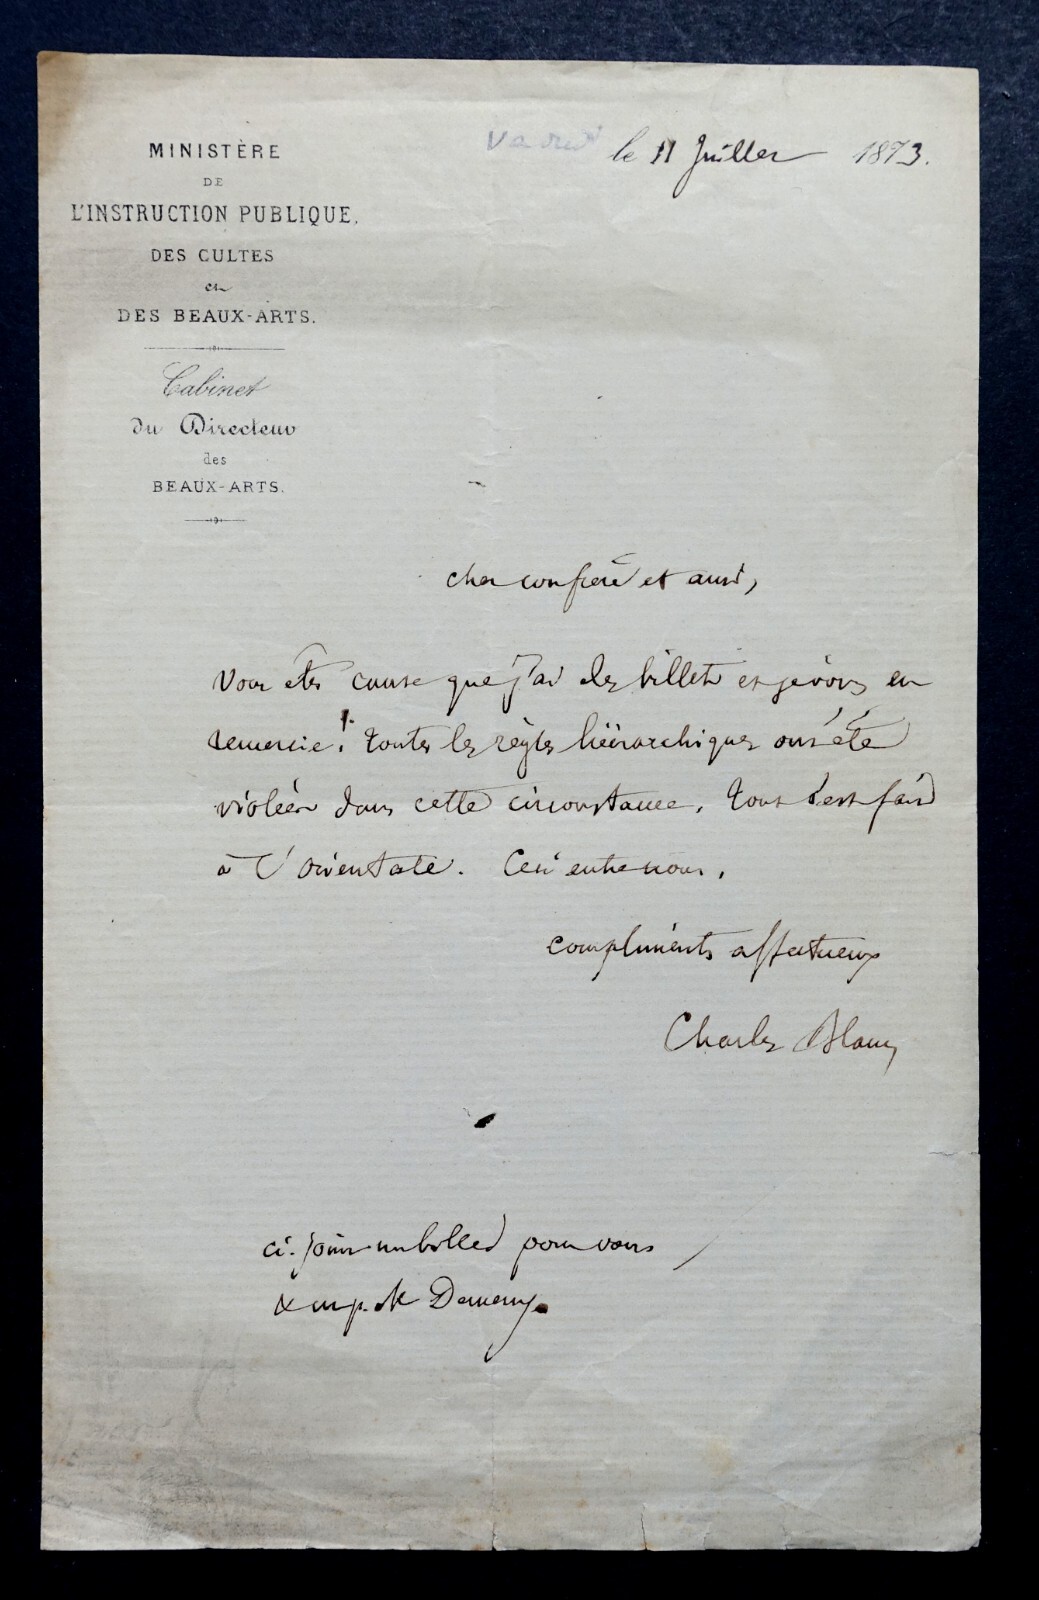 MINISTÈRE
DE
L'INSTRUCTION PUBLIQUE,
DES CULTES
et
DES BEAUX-ARTS.
Cabinet
du Directeur
des
BEAUX-ARTS.
le 11 Juillet 1873.
cher confrère et ami,
Vous êtes cause que j'ai des billets et je vous en
remercie! toutes les règles hiérarchiques ont été
violées dans cette circonstance, tout s'est fait
à l'orientale. Ceci entre nous,
compliments affectueux
Charles Blanc
ci-joint un billet pour vous
& un p. M